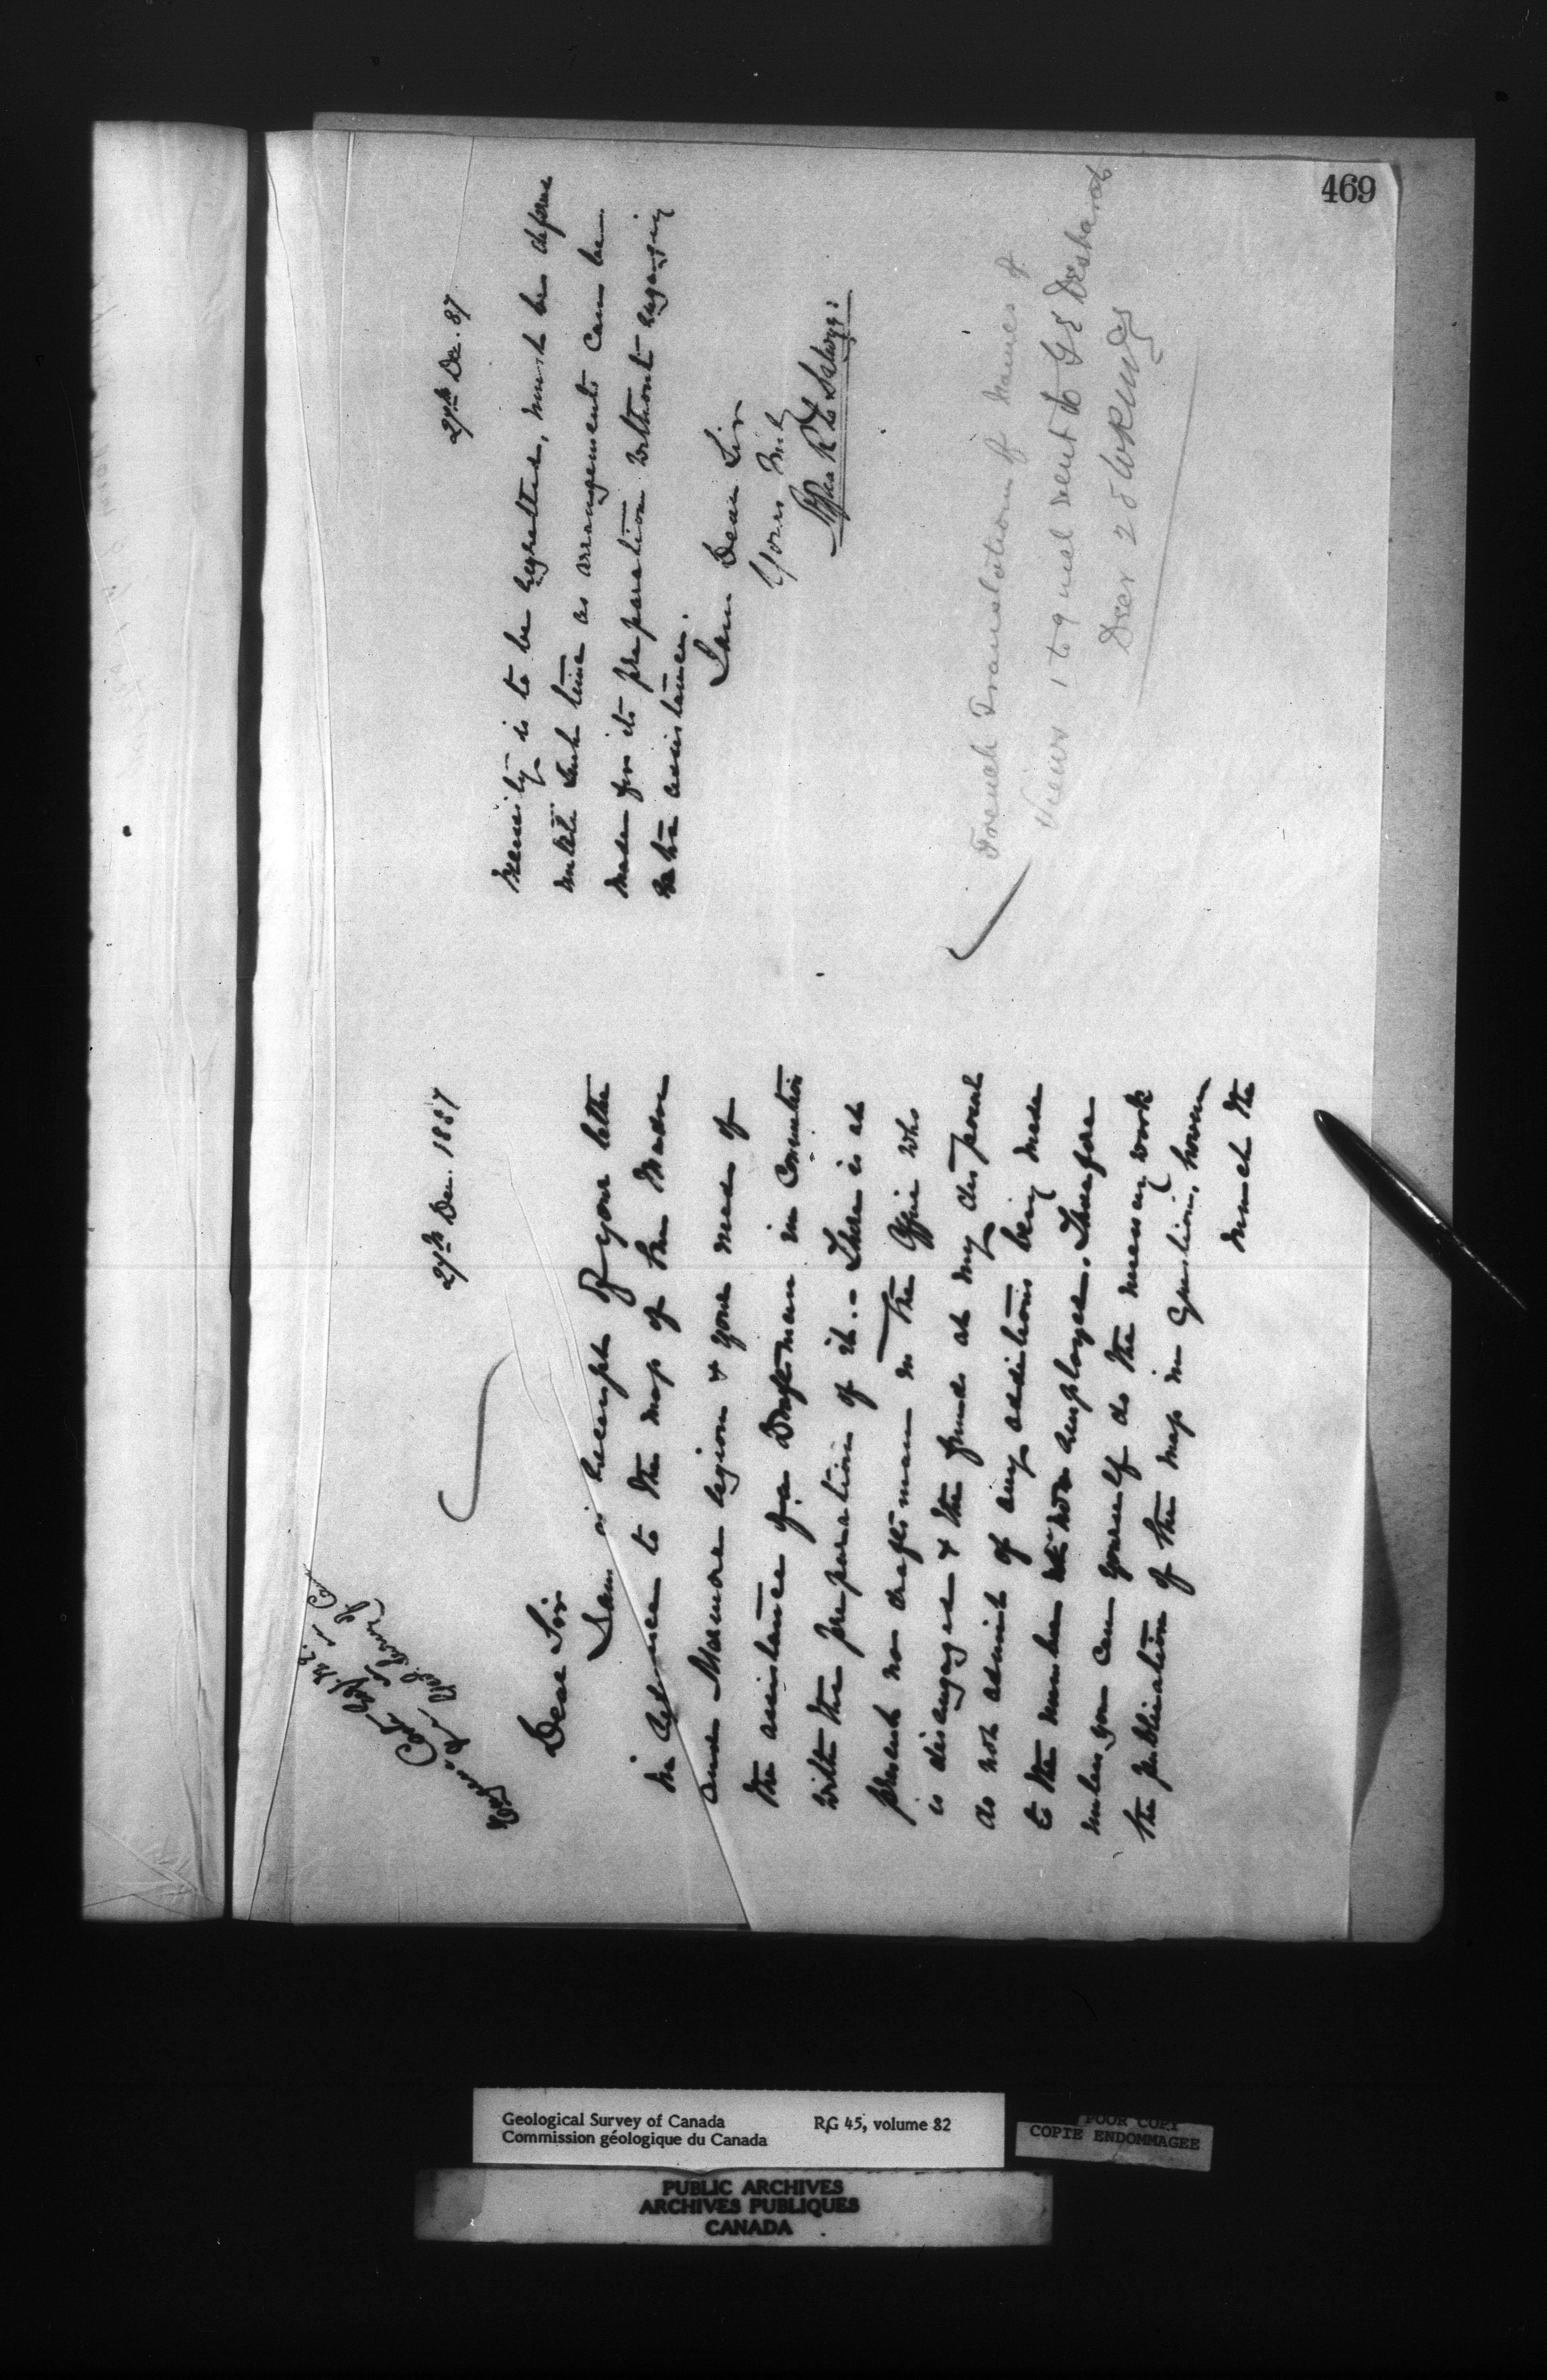 469
27th Dec. 1887
Dear Sir
I am in receipt of your letter
in reference to the map of the Madoc
and Marmora region & your need of
the assistance of a Draftsman in connection
with the preparation of it. - There is at
present no draftsman in the Office who
is disengaged & the funds at my disposal
do not admit of any additions being made
to the number now employed. Therefore
unless you can yourself do the necessary work
the publication of the map in question, however
much the
27th Dec. 87
necessity is to be regretted, must be deferred
until such time as arrangements can be
made for its preparation without engaging
extra assistance.
I am Dear Sir
Yours truly
French Translation of Names of
Views 1 to 9 incl sent to G E Desbarats
Decr 28
Geological Survey of Canada RG 45, volume 82
Commission géologique du Canada
POOR COPY
COPIE ENDOMMAGEE
PUBLIC ARCHIVES
ARCHIVES PUBLIQUES
CANADA